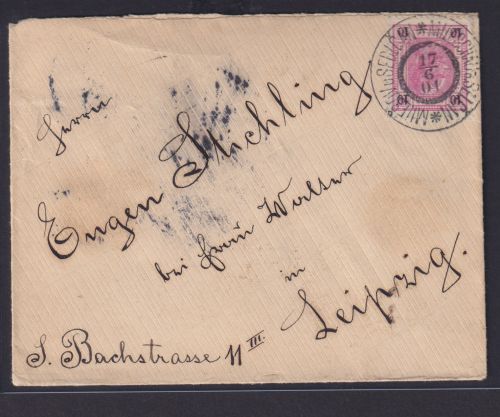 Herrn
Eugen Stichling
bei Frau Walter
in
Leipzig.
S. Bachstrasse 11 III.
10 10
10 10
17
6
01